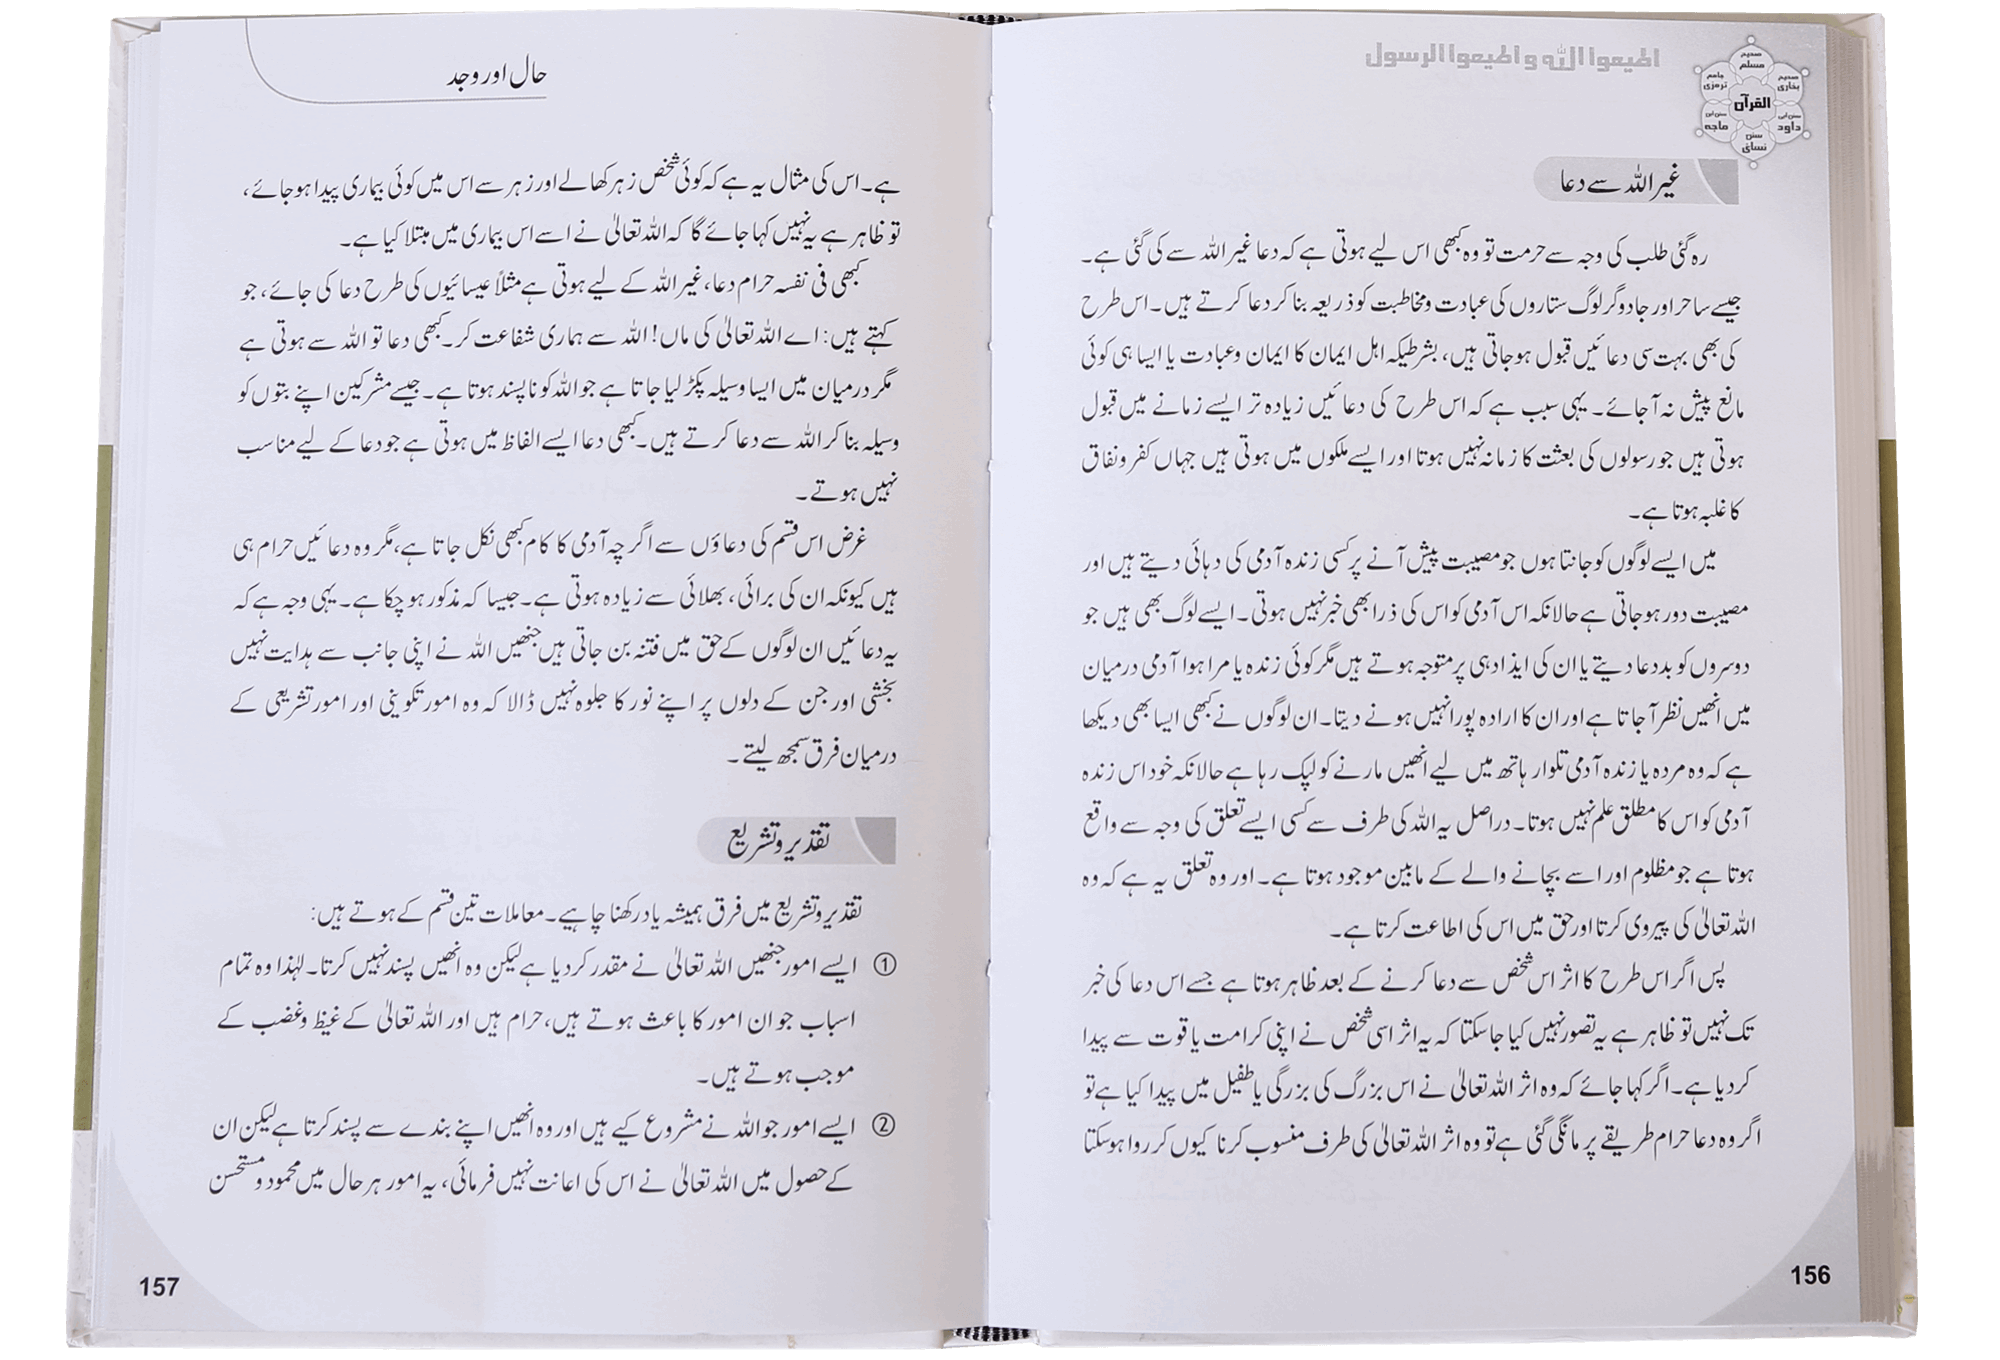 اطیعوا اللہ و اطیعوا الرسول
صحیح مسلم
صحیح بخاری
جامع ترمزی
القرآن
سنن ابی داود
سنن ابن ماجہ
سنن نسائی
غیر اللہ سے دعا
رہ گئی طلب کی وجہ سے حرمت تو وہ کبھی اس لیے ہوتی ہے کہ دعا غیر اللہ سے کی گئی ہے۔
جیسے ساحر اور جادوگر لوگ ستاروں کی عبادت و مخاطبت کو ذریعہ بنا کر دعا کرتے ہیں۔ اس طرح
کی بھی بہت سی دعائیں قبول ہو جاتی ہیں، بشرطیکہ اہل ایمان کا ایمان و عبادت یا ایسا ہی کوئی
مانع پیش نہ آ جائے۔ یہی سبب ہے کہ اس طرح کی دعائیں زیادہ تر ایسے زمانے میں قبول
ہوتی ہیں جو رسولوں کی بعثت کا زمانہ نہیں ہوتا اور ایسے ملکوں میں ہوتی ہیں جہاں کفر و نفاق
کا غلبہ ہوتا ہے۔
میں ایسے لوگوں کو جانتا ہوں جو مصیبت پیش آنے پر کسی زندہ آدمی کی دہائی دیتے ہیں اور
مصیبت دور ہو جاتی ہے حالانکہ اس آدمی کو اس کی ذرا بھی خبر نہیں ہوتی۔ ایسے لوگ بھی ہیں جو
دوسروں کو بددعا دیتے یا ان کی ایذا دہی پر متوجہ ہوتے ہیں مگر کوئی زندہ یا مرا ہوا آدمی درمیان
میں انھیں نظر آ جاتا ہے اور ان کا ارادہ پورا نہیں ہونے دیتا۔ ان لوگوں نے کبھی ایسا بھی دیکھا
ہے کہ وہ مردہ یا زندہ آدمی تلوار ہاتھ میں لیے انھیں مارنے کو لپک رہا ہے حالانکہ خود اس زندہ
آدمی کو اس کا مطلق علم نہیں ہوتا۔ دراصل یہ اللہ کی طرف سے کسی ایسے تعلق کی وجہ سے واقع
ہوتا ہے جو مظلوم اور اسے بچانے والے کے مابین موجود ہوتا ہے۔ اور وہ تعلق یہ ہے کہ وہ
اللہ تعالیٰ کی پیروی کرتا اور حق میں اس کی اطاعت کرتا ہے۔
پس اگر اس طرح کا اثر اس شخص سے دعا کرنے کے بعد ظاہر ہوتا ہے جسے اس دعا کی خبر
تک نہیں تو ظاہر ہے یہ تصور نہیں کیا جا سکتا کہ یہ اثر اسی شخص نے اپنی کرامت یا قوت سے پیدا
کر دیا ہے۔ اگر کہا جائے کہ وہ اثر اللہ تعالیٰ نے اس بزرگ کی بزرگی یا طفیل میں پیدا کیا ہے تو
اگر وہ دعا حرام طریقے پر مانگی گئی ہے تو وہ اثر اللہ تعالیٰ کی طرف منسوب کرنا کیوں کر روا ہو سکتا
156
حال اور وجد
ہے۔ اس کی مثال یہ ہے کہ کوئی شخص زہر کھا لے اور زہر سے اس میں کوئی بیماری پیدا ہو جائے،
تو ظاہر ہے یہ نہیں کہا جائے گا کہ اللہ تعالیٰ نے اسے اس بیماری میں مبتلا کیا ہے۔
کبھی فی نفسہ حرام دعا، غیر اللہ کے لیے ہوتی ہے مثلاً عیسائیوں کی طرح دعا کی جائے، جو
کہتے ہیں: اے اللہ تعالیٰ کی ماں! اللہ سے ہماری شفاعت کر۔ کبھی دعا تو اللہ سے ہوتی ہے
مگر درمیان میں ایسا وسیلہ پکڑ لیا جاتا ہے جو اللہ کو ناپسند ہوتا ہے۔ جیسے مشرکین اپنے بتوں کو
وسیلہ بنا کر اللہ سے دعا کرتے ہیں۔ کبھی دعا ایسے الفاظ میں ہوتی ہے جو دعا کے لیے مناسب
نہیں ہوتے۔
غرض اس قسم کی دعاؤں سے اگرچہ آدمی کا کام کبھی نکل جاتا ہے، مگر وہ دعائیں حرام ہی
ہیں کیونکہ ان کی برائی، بھلائی سے زیادہ ہوتی ہے۔ جیسا کہ مذکور ہو چکا ہے۔ یہی وجہ ہے کہ
یہ دعائیں ان لوگوں کے حق میں فتنہ بن جاتی ہیں جنھیں اللہ نے اپنی جانب سے ہدایت نہیں
بخشی اور جن کے دلوں پر اپنے نور کا جلوہ نہیں ڈالا کہ وہ امور تکوینی اور امور تشریعی کے
درمیان فرق سمجھ لیتے۔
تقدیر و تشریع
تقدیر و تشریع میں فرق ہمیشہ یاد رکھنا چاہیے۔ معاملات تین قسم کے ہوتے ہیں:
① ایسے امور جنھیں اللہ تعالیٰ نے مقدر کر دیا ہے لیکن وہ انھیں پسند نہیں کرتا۔ لہٰذا وہ تمام
اسباب جو ان امور کا باعث ہوتے ہیں، حرام ہیں اور اللہ تعالیٰ کے غیظ و غضب کے
موجب ہوتے ہیں۔
② ایسے امور جو اللہ نے مشروع کیے ہیں اور وہ انھیں اپنے بندے سے پسند کرتا ہے لیکن ان
کے حصول میں اللہ تعالیٰ نے اس کی اعانت نہیں فرمائی، یہ امور ہر حال میں محمود و مستحسن
157